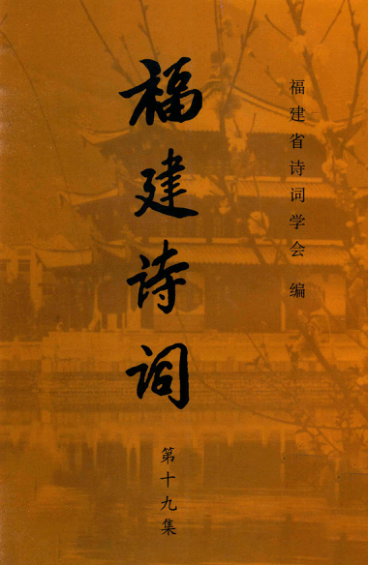 福建省诗词学会 编
福建诗词
第十九集